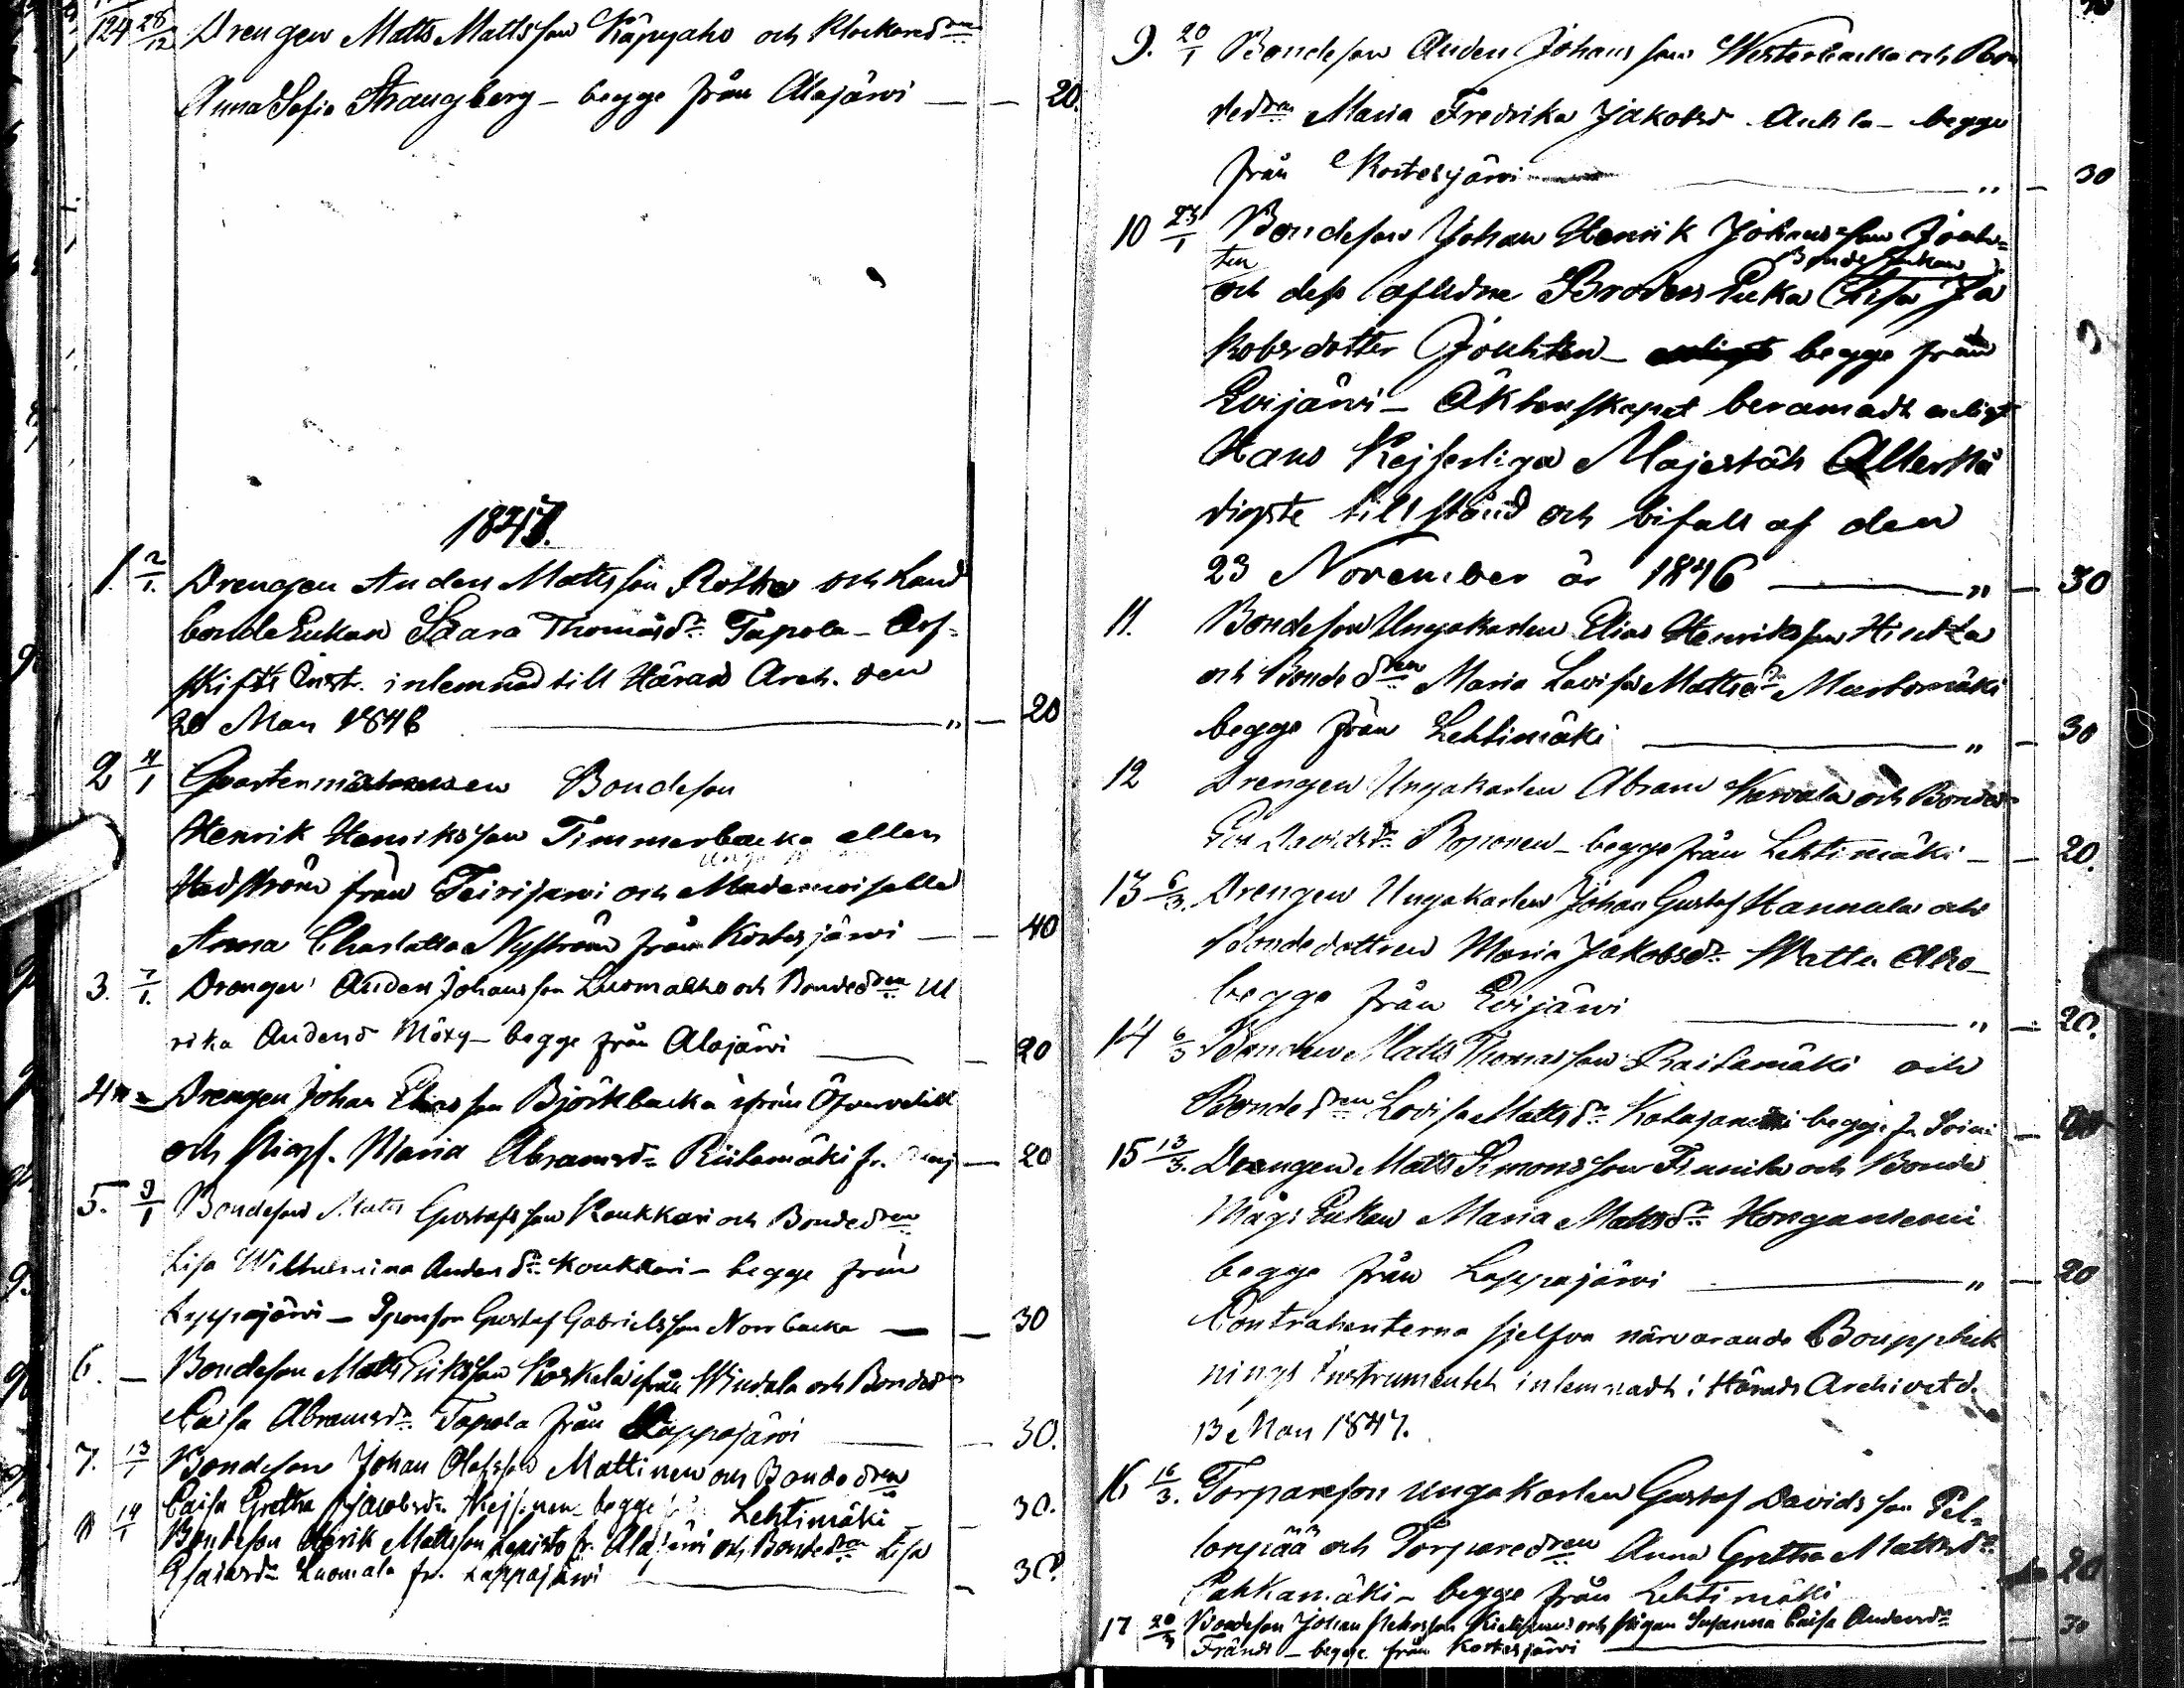 124 28/12 Drengen Matts Mattsson Käpyaho och Klockaredrn
Anna Sofia Strangberg – begge från Alajärvi — — 20.
1847.
1. 2/1. Drengen Anders Mattsson Rothe och Land
bonde Enkan Saara Thomasdr Tapola – Arf-
skifts Instr. inlemnad till Härad Arch. den
20 Mars 1846 — " — 20
2 4/1 Bondeson
Henrik Henriksson Timmerbacka eller
Hedström från Teirijärvi och Mademoiselle
Anna Charlotta Nyström från Kortesjärvi — — 40
3. 7/1. Drengen Anders Johansson Luomaaho och Bondedrn Ul
rika Andersd Möxy – begge från Alajärvi — — 20
4 Drengen Johan Eliasson Björkbacka ifrån
och Pigan Maria Abramsdr Riitamäki fr. — 20
5. 9/1 Bondeson Matts Gustafsson Koukkari och Bondedrn
Lisa Wilhelmina Andersdr Koukkari – begge från
Lappajärvi – Sponson Gustaf Gabrielsson Norrbacka — — 30
6. — Bondeson Matts Eriksson Koskela ifrån Windala och Bondedr
Caisa Abramsdr Tapola från Lappajärvi — — 30.
7. 13/1 Bondeson Johan Olofsson Mattinen och Bondedrn
Caisa Gretha Jacobsdr begge Lehtimäki — 30.
14/1 Bondeson Henrik Mattsson Lepistö fr. Alajärvi och Bondedrn Lisa
Esaiasdr Luomala fr. Lappajärvi — — 30.
9. 20/1 Bondeson Anders Johansson Westerbacka och Bon
dedrn Maria Fredrika Jakobsd Anttila – begge
från Kortesjärvi — " — 30
10 23/1 Bondeson Johan Henrik Johansson Jouh=
ten Bonde Enkan
och dess aflidne Broders Enka Lisa Ja
kobsdotter Jouhten – begge från
Evijärvi – Äktenskapet beramadt enligt
Hans Kejserliga Majestäts Allernå
digste tillstånd och bifall af den
23 November år 1846 — " — 30
11. Bondeson Ungakarlen Elias Henriksson Hintsa
och Bondedrn Maria Lovisa Mattsdr Mustomäki
begge från Lehtimäki — " — 30
12 Drengen Ungakarlen Abram Kervala och Bondedr
Eva Davidsdr Roponen – begge från Lehtimäki — — 20.
13 6/3. Drengen Ungakarlen Johan Gustaf Hannula och
Bondedottren Maria Jakobsdr Matti Aho –
begge från Evijärvi — " — 20.
14 6/3 Bonden Matts Thomasson Raisamäki och
Bondedrn Lovisa Mattsdr begge fr Soini —
15 13/3. Drengen Matts Simonsson Finnilä och Bonde
Mågs Enkan Maria Mattsdr Honganiemi
begge från Lappajärvi — " — 20
Contrahenterna sjelfva närvarande Boupptek
nings Instrumentet inlemnadt i Härads Archivet d.
13 Mars 1847.
16 16/3. Torpareson Ungakarlen Gustaf Davidsson Pel=
lonpää och Torparedrn Anna Gretha Mattsdr
Pahkamäki – begge från Lehtimäki — 20
17 20/3 Bondeson Johan och Pigan Susanna Caisa Andersdr
Fränds – begge från Kortesjärvi — — 30